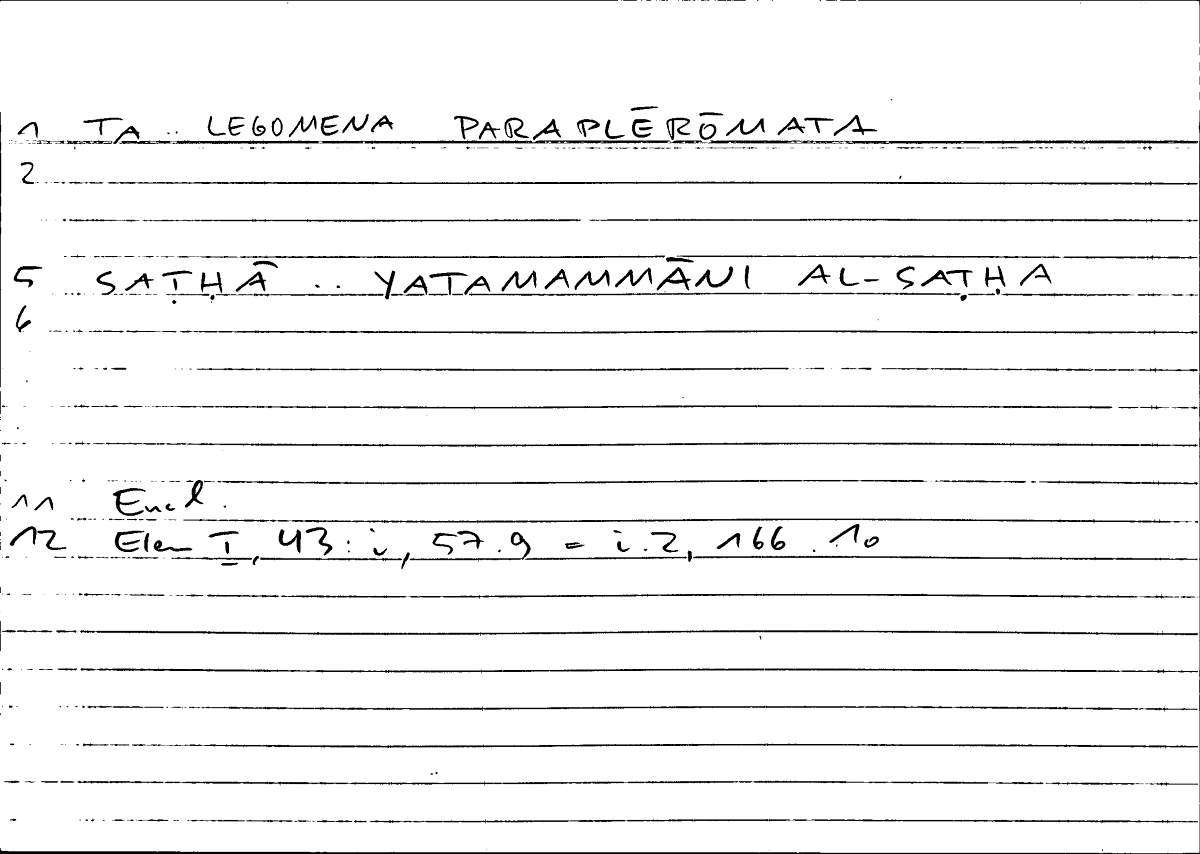 1 TA .. LEGOMENA PARAPLĒRŌMATA
2
5 SAṬḤĀ .. YATAMAMMĀNI AL-SAṬḤA
6
11 Eucl.
12 Elem I, 43 : i, 57.9 = i.2, 166.10